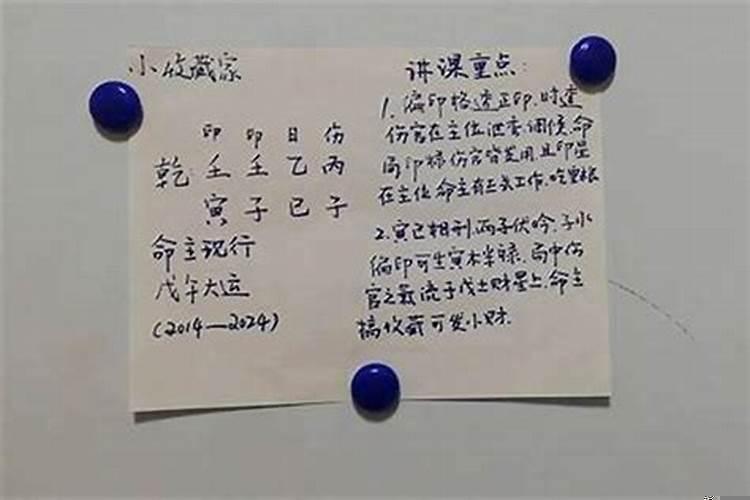 小收藏家
印 印 日 伤
乾 壬 壬 乙 丙
寅 子 巳 子
命主现行
戊午大运
(2014—2024)
讲课重点:
1. 偏印格透正印,时透
伤官在主位泄秀调候,命
局印绶伤官皆为用,且印星
在主位,命主有正式工作,吃皇粮
2. 寅巳相刑,两子伏吟,子水
偏印可生寅木羊禄,局中伤
官之气流于戊土财星上,命主
搞收藏可发小财.